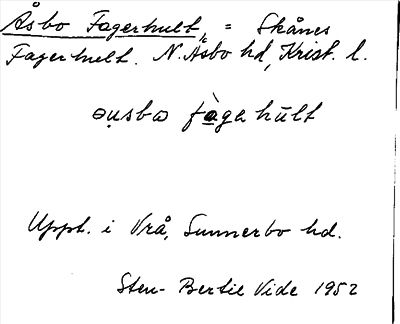 Åsbo Fagerhult, = Skånes
Fagerhult. N. Åsbo hd, Krist. l.
ɷụsbɷ fàgɐhūlt
Uppt. i Vrå, Sunnerbo hd.
Sten-Bertil Vide 1952